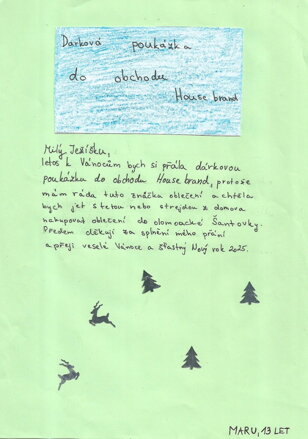 Dárková poukázka
do obchodu
House brand
Milý Ježíšku,
letos k Vánocům bych si přála dárkovou
poukázku do obchodu House brand, protože
mám ráda tuto značku oblečení a chtěla
bych jet s tetou nebo strejdou z domova
nakupovat oblečení do olomoucké Šantovky.
Předem děkuji za splnění mého přání
a přeji veselé Vánoce a šťastný Nový rok 2025.
MARU, 13 LET